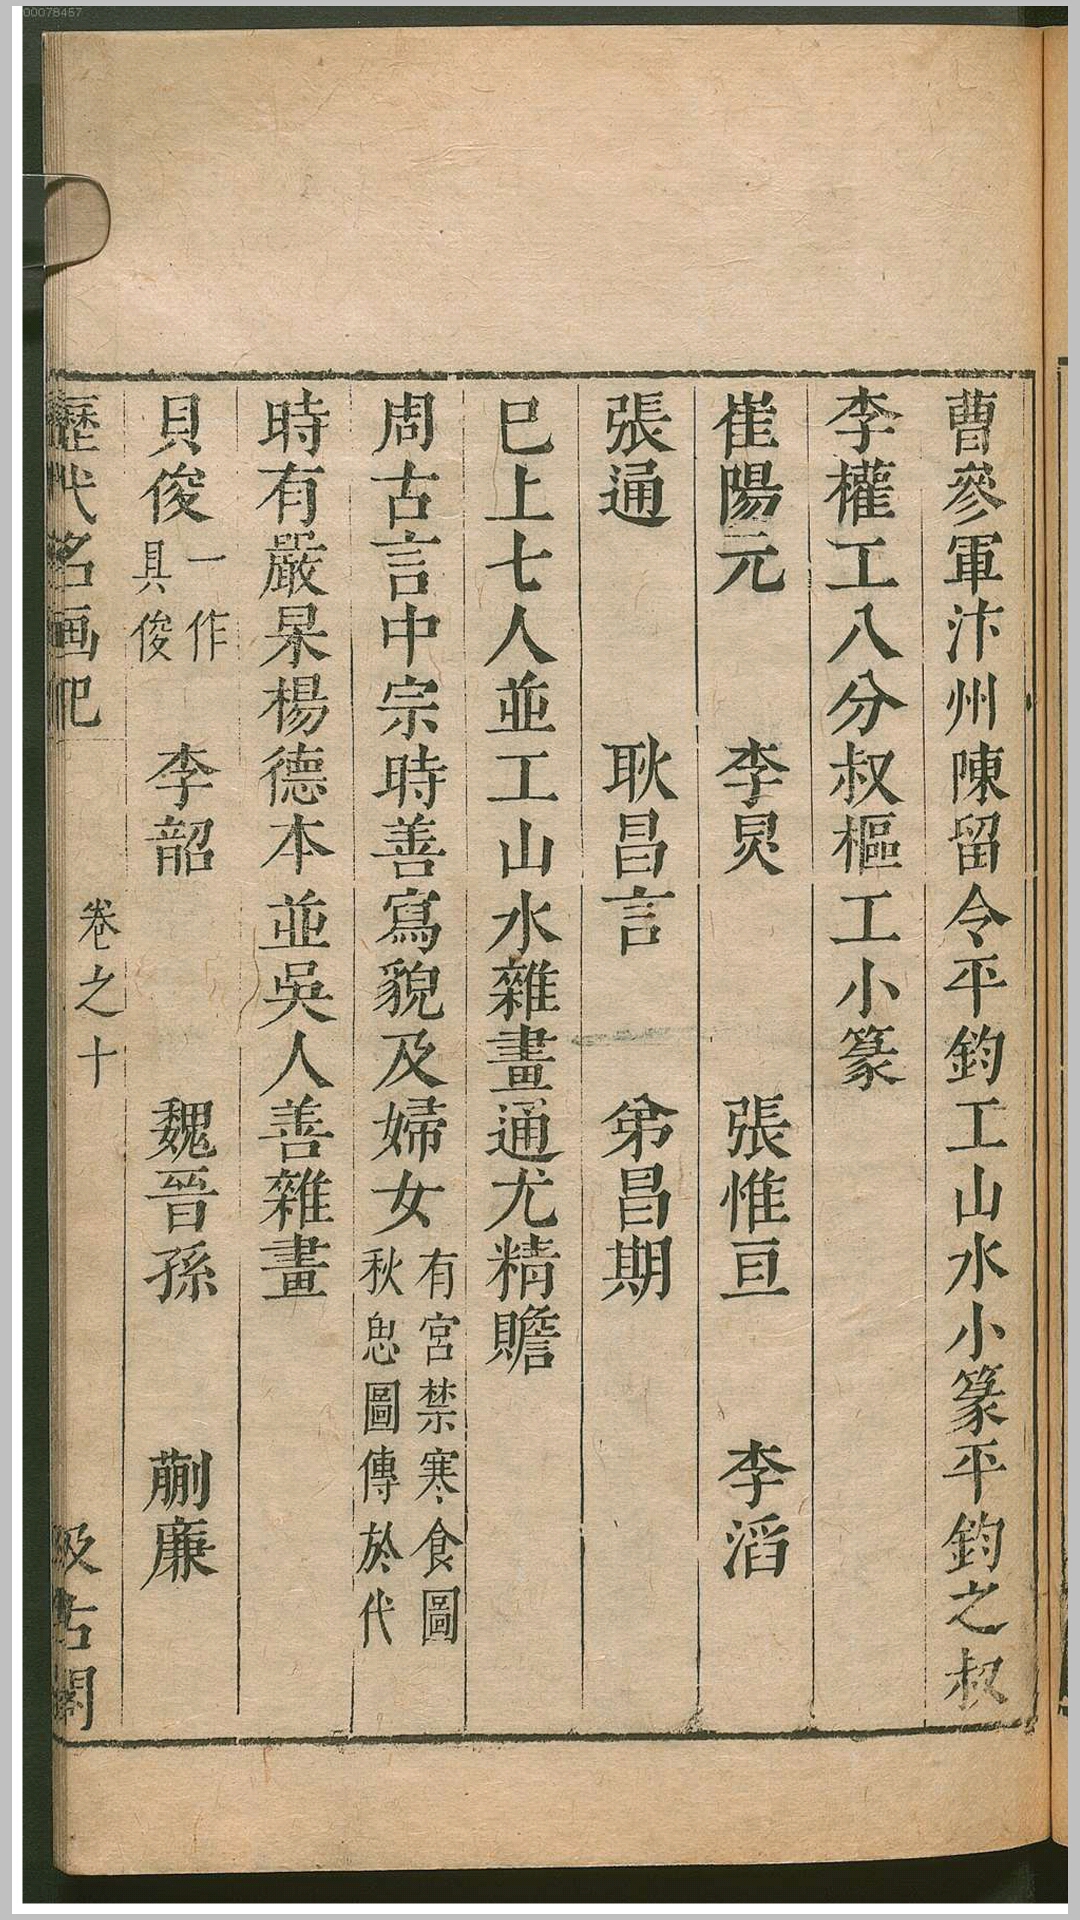 00078457
曹參軍汴州陳留令平鈞工山水小篆平鈞之叔
李權工八分叔樞工小篆
崔陽元 李炅 張惟亘 李滔
張通 耿昌言 弟昌期
巳上七人並工山水雜畫通尤精贍
周古言中宗時善寫貌及婦女有宮禁寒食圖秋思圖傳於代
時有嚴杲楊德本並吳人善雜畫
貝俊一作具俊 李韶 魏晉孫 蒯廉
歷代名画記 卷之十 汲古閣